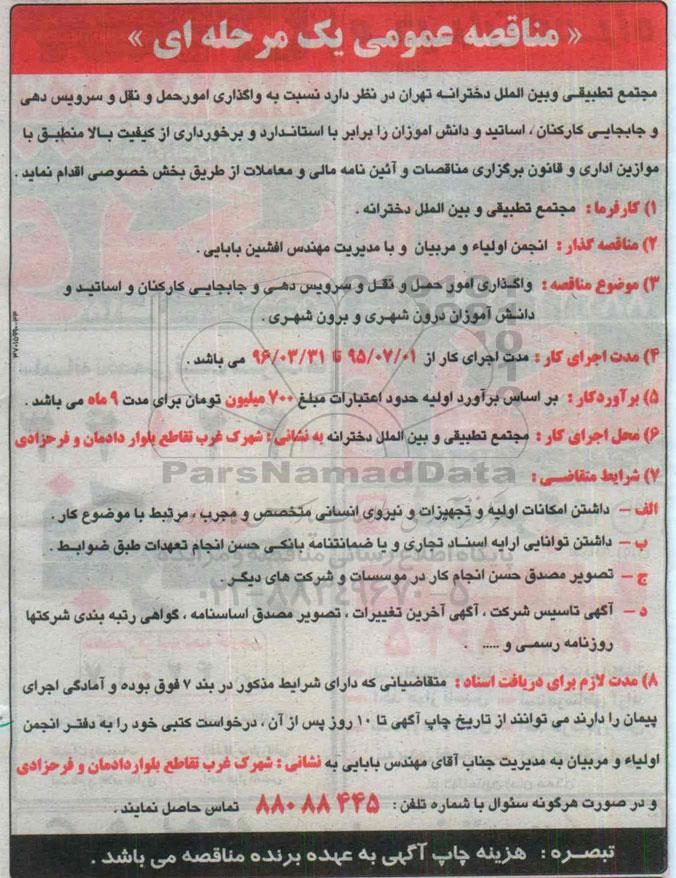 « مناقصه عمومی یک مرحله ای »
مجتمع تطبیقی وبین الملل دخترانه تهران در نظر دارد نسبت به واگذاری امورحمل و نقل و سرویس دهی
و جابجایی کارکنان ، اساتید و دانش اموزان را برابر با استاندارد و برخورداری از کیفیت بالا منطبق با
موازین اداری و قانون برگزاری مناقصات و آئین نامه مالی و معاملات از طریق بخش خصوصی اقدام نماید .
۱) کارفرما : مجتمع تطبیقی و بین الملل دخترانه .
۲) مناقصه گذار : انجمن اولیاء و مربیان و با مدیریت مهندس افشین بابایی .
۳) موضوع مناقصه : واگذاری امور حمل و نقل و سرویس دهی و جابجایی کارکنان و اساتید و
دانش آموزان درون شهری و برون شهری .
۴) مدت اجرای کار : مدت اجرای کار از ۹۵/۰۷/۰۱ تا ۹۶/۰۳/۳۱ می باشد .
۵) برآوردکار : بر اساس برآورد اولیه حدود اعتبارات مبلغ ۷۰۰ میلیون تومان برای مدت ۹ ماه می باشد .
۶) محل اجرای کار : مجتمع تطبیقی و بین الملل دخترانه به نشانی : شهرک غرب تقاطع بلوار دادمان و فرحزادی
ParsNamadData
۷) شرایط متقاضی :
الف – داشتن امکانات اولیه و تجهیزات و نیروی انسانی متخصص و مجرب ، مرتبط با موضوع کار .
ب – داشتن توانایی ارایه اسناد تجاری و یا ضمانتنامه بانکی حسن انجام تعهدات طبق ضوابط .
ج – تصویر مصدق حسن انجام کار در موسسات و شرکت های دیگر .
۰۲۱-۸۸۳۴۹۶۷۰-۵
د – آگهی تاسیس شرکت ، آگهی آخرین تغییرات ، تصویر مصدق اساسنامه ، گواهی رتبه بندی شرکتها
روزنامه رسمی و ..... .
۸) مدت لازم برای دریافت اسناد : متقاضیانی که دارای شرایط مذکور در بند ۷ فوق بوده و آمادگی اجرای
پیمان را دارند می توانند از تاریخ چاپ آگهی تا ۱۰ روز پس از آن ، درخواست کتبی خود را به دفتر انجمن
اولیاء و مربیان به مدیریت جناب آقای مهندس بابایی به نشانی : شهرک غرب تقاطع بلواردادمان و فرحزادی
و در صورت هرگونه سئوال با شماره تلفن : ۸۸۰۸۸۴۴۵ تماس حاصل نمایند .
تبصره : هزینه چاپ آگهی به عهده برنده مناقصه می باشد .